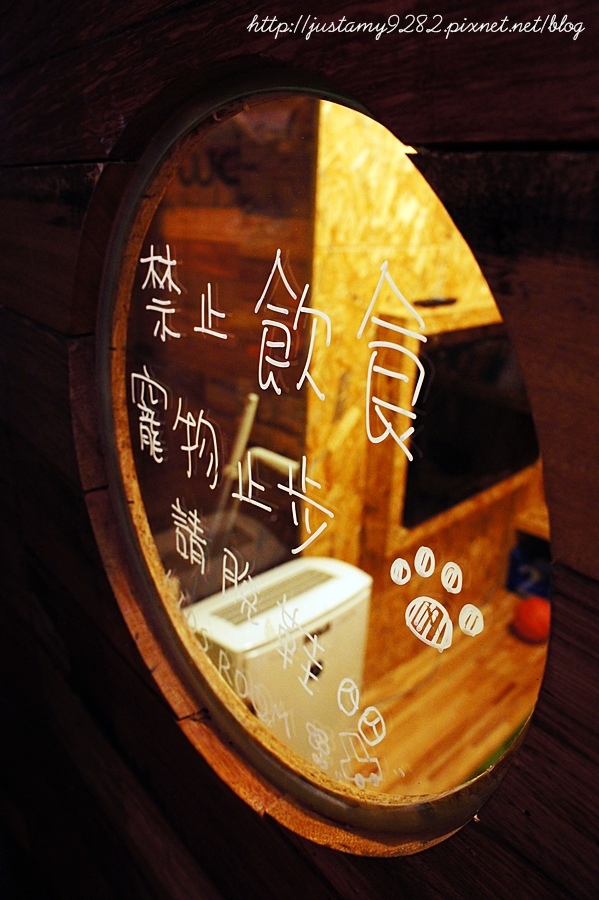 http://justamy9282.pixnet.net/blog
禁止飲食
寵物止步
請脫鞋